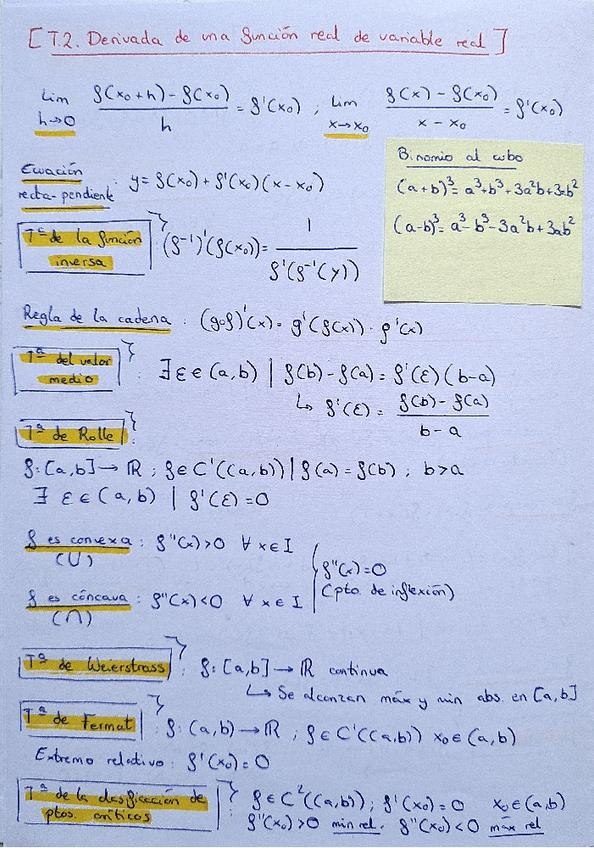 [T.2. Derivada de una función real de variable real]
lim h→0 (f(x₀+h) - f(x₀))/h = f'(x₀) ; lim x→x₀ (f(x) - f(x₀))/(x - x₀) = f'(x₀)
Binomio al cubo
(a+b)³ = a³+b³+3a²b+3ab²
(a-b)³ = a³-b³-3a²b+3ab²
Ecuación
recta-pendiente : y = f(x₀) + f'(x₀)(x-x₀)
Tª de la función
inversa } (f⁻¹)'(f(x₀)) = 1/f'(f⁻¹(y))
Regla de la cadena : (g∘f)'(x) = g'(f(x)) · f'(x)
Tª del valor
medio } : ∃ ε ∈ (a,b) | f(b) - f(a) = f'(ε)(b-a)
↳ f'(ε) = (f(b) - f(a))/(b-a)
Tª de Rolle } :
f: [a,b] → ℝ ; f ∈ C'((a,b)) | f(a) = f(b) ; b>a
∃ ε ∈ (a,b) | f'(ε) = 0
f es convexa : f''(x) > 0 ∀ x ∈ I
(∪)
f''(x) = 0
(pto. de inflexión)
f es cóncava : f''(x) < 0 ∀ x ∈ I
(∩)
Tª de Weierstrass } : f: [a,b] → ℝ continua
↳ Se alcanzan máx y min abs. en [a,b]
Tª de Fermat } : f: (a,b) → ℝ ; f ∈ C'((a,b)) x₀ ∈ (a,b)
Extremo relativo : f'(x₀) = 0
Tª de la clasificación de
ptos. críticos } : f ∈ C²((a,b)) ; f'(x₀) = 0 x₀ ∈ (a,b)
f''(x₀) > 0 min rel. f''(x₀) < 0 máx rel